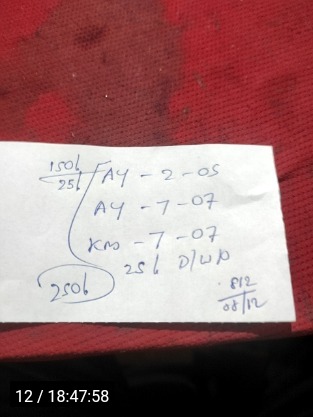 150L
25L
AY - 2 - 05
AY - 7 - 07
Km - 7 - 07
25L D/W/P
250L
812
08/12
12 / 18:47:58